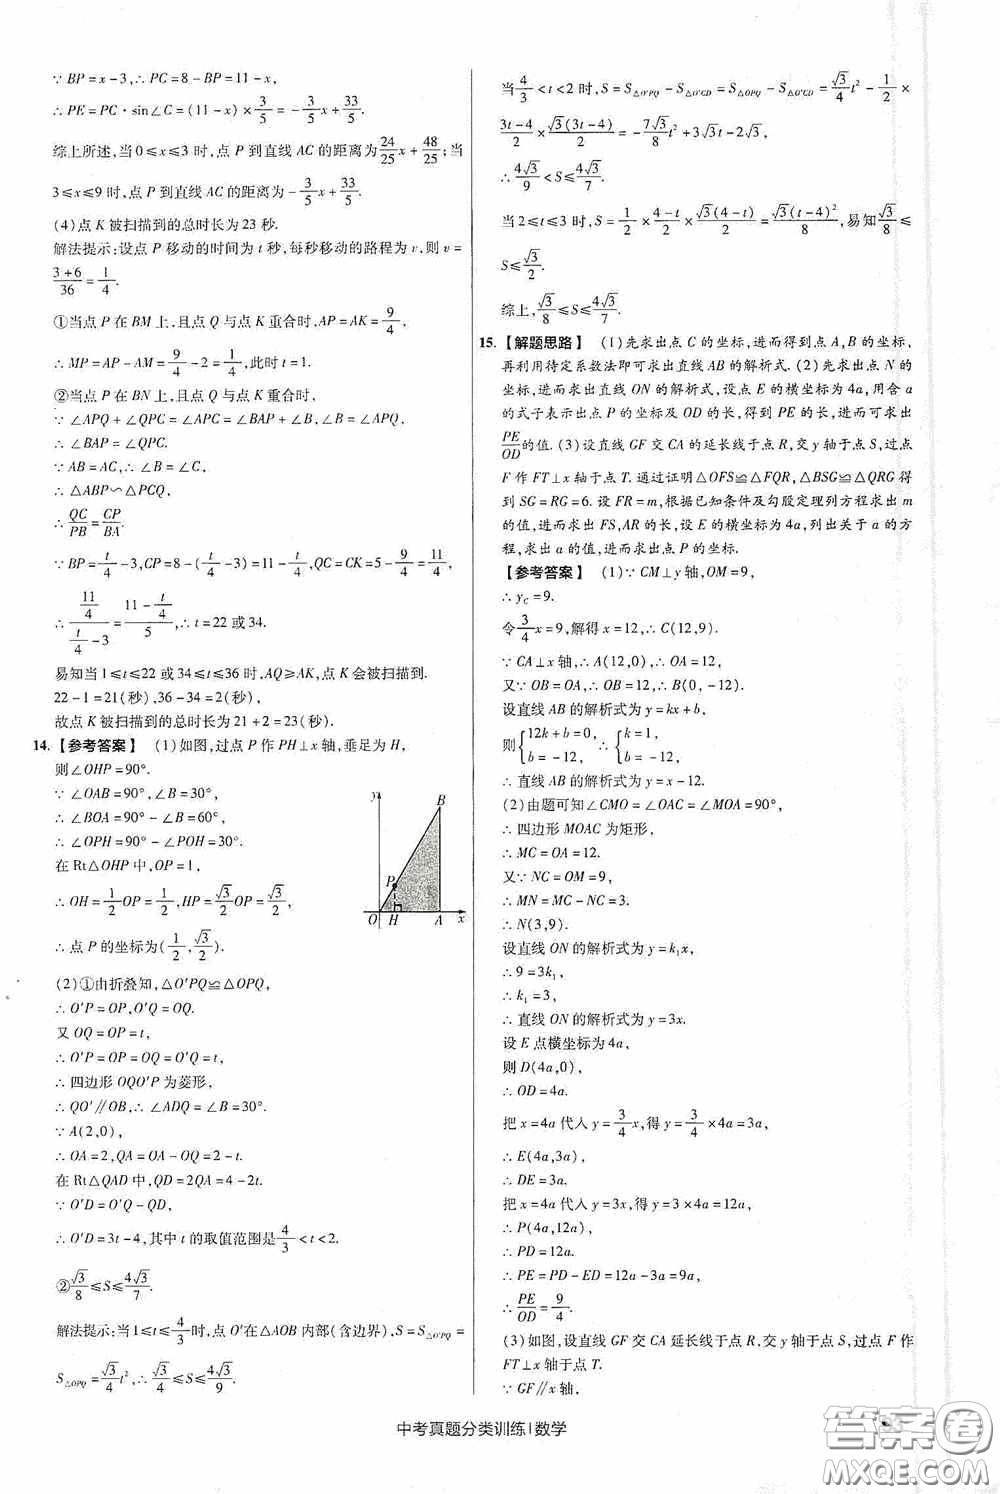 ∵ BP=x-3,∴ PC=8-BP=11-x,
∴ PE=PC·sin∠C=(11-x)×3/5=-3/5x+33/5.
综上所述,当0≤x≤3时,点P到直线AC的距离为24/25x+48/25;当
3≤x≤9时,点P到直线AC的距离为-3/5x+33/5.
(4)点K被扫描到的总时长为23秒.
解法提示:设点P移动的时间为t秒,每秒移动的路程为v,则v=
(3+6)/36=1/4.
①当点P在BM上,且点Q与点K重合时,AP=AK=9/4,
∴ MP=AP-AM=9/4-2=1/4,此时t=1.
②当点P在BN上,且点Q与点K重合时,
∵ ∠APQ+∠QPC=∠APC=∠BAP+∠B,∠APQ=∠B,
∴ ∠BAP=∠QPC.
∵ AB=AC,∴ ∠B=∠C,
∴ △ABP∽△PCQ,
∴ QC/PB=CP/BA.
∵ BP=t/4-3,CP=8-(t/4-3)=11-t/4,QC=CK=5-9/4=11/4,
∴ (11/4)/(t/4-3)=(11-t/4)/5,∴ t=22或34.
易知当1≤t≤22或34≤t≤36时,AQ≥AK,点K会被扫描到.
22-1=21(秒),36-34=2(秒),
故点K被扫描到的总时长为21+2=23(秒).
14.【参考答案】 (1)如图,过点P作PH⊥x轴,垂足为H,
则∠OHP=90°.
∵ ∠OAB=90°,∠B=30°,
∴ ∠BOA=90°-∠B=60°,
∴ ∠OPH=90°-∠POH=30°.
在Rt△OHP中,OP=1,
∴ OH=1/2OP=1/2,HP=√3/2OP=√3/2,
∴ 点P的坐标为(1/2,√3/2).
y
B
P
O H A x
(2)①由折叠知,△O'PQ≌△OPQ,
∴ O'P=OP,O'Q=OQ.
又OQ=OP=t,
∴ O'P=OP=OQ=O'Q=t,
∴ 四边形OQO'P为菱形,
∴ QO'∥OB,∴ ∠ADQ=∠B=30°.
∵ A(2,0),
∴ OA=2,QA=OA-OQ=2-t.
在Rt△QAD中,QD=2QA=4-2t.
∵ O'D=O'Q-QD,
∴ O'D=3t-4,其中t的取值范围是4/3<t<2.
②√3/8≤S≤4√3/7.
解法提示:当1≤t≤4/3时,点O'在△AOB内部(含边界),S=S△O'PQ=
S△OPQ=√3/4t²,∴ √3/4≤S≤4√3/9.
当4/3<t<2时,S=S△O'PQ-S△O'CD=S△OPQ-S△O'CD=√3/4t²-1/2×
(3t-4)/2×√3(3t-4)/2=-7√3/8t²+3√3t-2√3,
∴ 4√3/9<S≤4√3/7.
当2≤t≤3时,S=1/2×(4-t)/2×√3(4-t)/2=√3(t-4)²/8,易知√3/8≤
S≤√3/2.
综上,√3/8≤S≤4√3/7.
15.【解题思路】 (1)先求出点C的坐标,进而得到点A,B的坐标,
再利用待定系数法即可求出直线AB的解析式.(2)先求出点N的
坐标,进而求出直线ON的解析式,设点E的横坐标为4a,用含a
的式子表示出点P的坐标及OD的长,得到PE的长,进而可求出
PE/OD的值.(3)设直线GF交CA的延长线于点R,交y轴于点S,过点
F作FT⊥x轴于点T.通过证明△OFS≌△FQR,△BSG≌△QRG得
到SG=RG=6.设FR=m,根据已知条件及勾股定理列方程求出m
的值,进而求出FS,AR的长,设E的横坐标为4a,列出关于a的方
程,求出a的值,进而求出点P的坐标.
【参考答案】 (1)∵ CM⊥y轴,OM=9,
∴ yC=9.
令3/4x=9,解得x=12,∴ C(12,9).
∵ CA⊥x轴,∴ A(12,0),∴ OA=12.
又∵ OB=OA,∴ B(0,-12).
设直线AB的解析式为y=kx+b,
则{12k+b=0, b=-12, ∴ {k=1, b=-12,
∴ 直线AB的解析式为y=x-12.
(2)由题可知∠CMO=∠OAC=∠MOA=90°,
∴ 四边形MOAC为矩形,
∴ MC=OA=12.
又∵ NC=OM=9,
∴ MN=MC-NC=3.
∴ N(3,9).
设直线ON的解析式为y=k₁x,
∴ 9=3k₁,
∴ k₁=3,
∴ 直线ON的解析式为y=3x.
设E点横坐标为4a,
则D(4a,0),
∴ OD=4a.
把x=4a代入y=3/4x,得y=3/4×4a=3a,
∴ E(4a,3a),
∴ DE=3a.
把x=4a代入y=3x,得y=3×4a=12a,
∴ P(4a,12a),
∴ PD=12a.
∴ PE=PD-ED=12a-3a=9a,
∴ PE/OD=9/4.
(3)如图,设直线GF交CA延长线于点R,交y轴于点S,过点F作
FT⊥x轴于点T.
∵ GF∥x轴,
中考真题分类训练|数学
答案卷
MXQE.COM